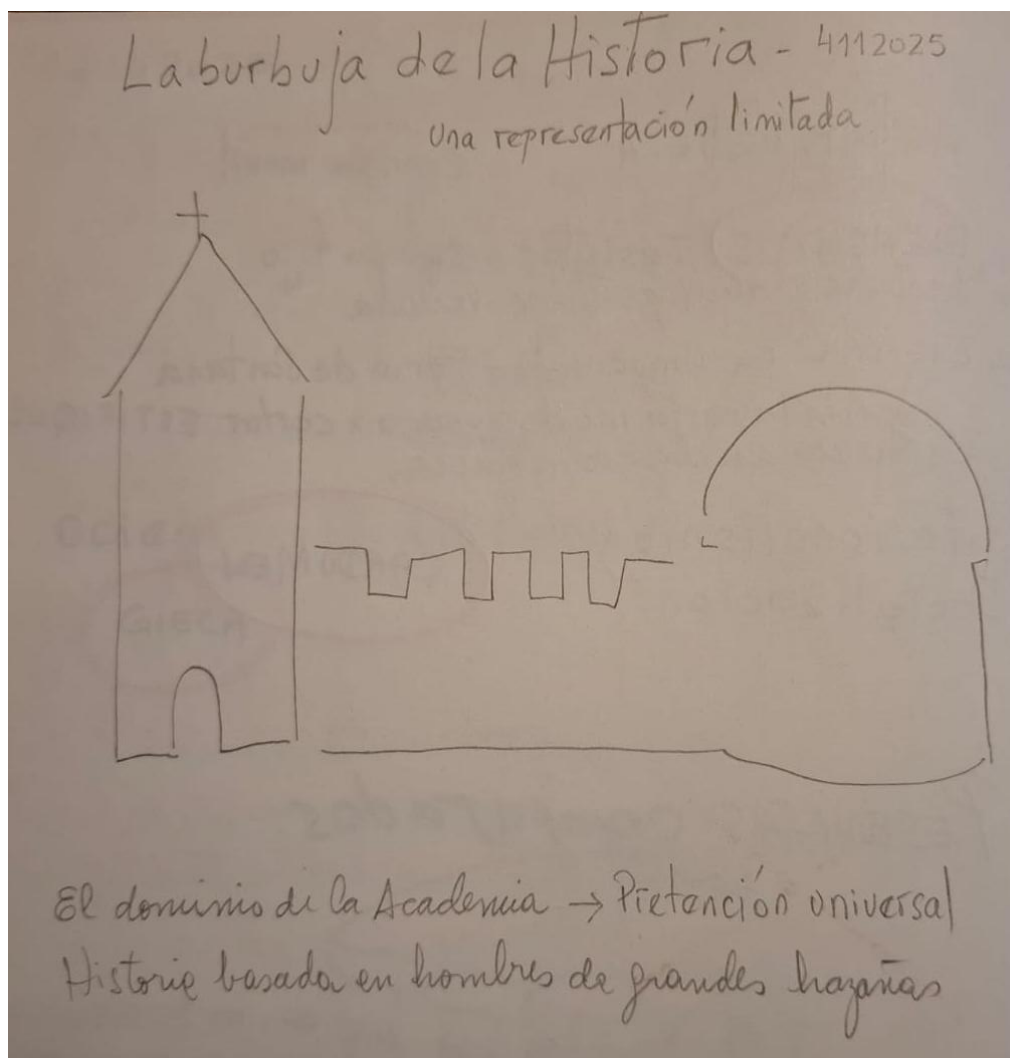 La burbuja de la Historia - 4112025
Una representación limitada
El dominio de la Academia → Pretención universal
Historia basada en hombres de grandes hazañas